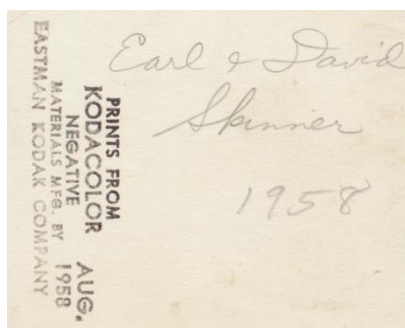 Earl & David
Skinner
1958
PRINTS FROM
KODACOLOR
NEGATIVE AUG.
MATERIALS MFG. BY 1958
EASTMAN KODAK COMPANY